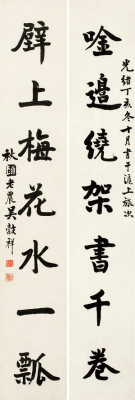 光緒丁亥冬十月書于滬上旅次
唫邊繞架書千卷
壁上梅花水一瓢
秋圃老農吳穀祥